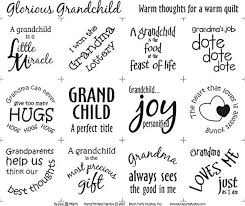 Glorious Grandchild
Warm thoughts for a warm quilt
A grandchild
is a
Little
Miracle
I won the
Grandma
Lottery
A grandchild
is the
food
at the
feast of life
Grandma's job
dote
dote
dote
Grandma Can never
give too many
HUGS
HUGS HUGS HUGS
GRAND
CHILD
A perfect title
Grandchild...
joy
personified
The heart that loves
is always
Grandparents
help us
think our
best thoughts
A grandchild
is the
most precious
gift
Grandma
always sees
the good in me
Grandma
LOVES ME
just as
I am